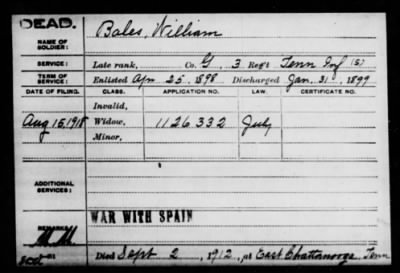 DEAD.
NAME OF SOLDIER: Bales, William
SERVICE: Late rank, Co. G, 3 Reg't Tenn Inf
TERM OF SERVICE: Enlisted Apr 25, 1898 Discharged Jan. 31, 1899
DATE OF FILING. CLASS. APPLICATION NO. LAW. CERTIFICATE NO.
Invalid,
Aug 15, 1918 Widow, 1126332 July
Minor,
ADDITIONAL SERVICES:
WAR WITH SPAIN
REMARKS:
Died Sept 2, 1912, at East Chattanooga, Tenn